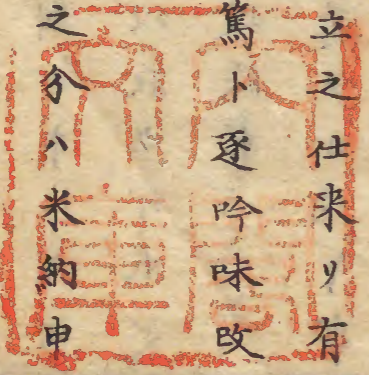 立之仕来リ有
篤ト逐吟味改
之分ハ米納申